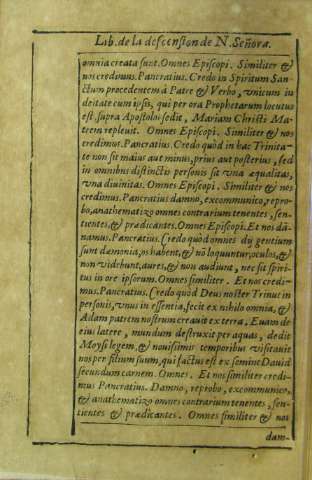 Lib. de la descension de N. Señora.
omnia creata sunt. Omnes Episcopi. Similiter &
nos credimus. Pancratius. Credo in Spiritum San-
ctum procedentem à Patre & Verbo, vnicum in
deitate cum ipsis, qui per ora Prophetarum locutus
est, supra Apostolos sedit, Mariam Christi Ma-
trem repleuit. Omnes Episcopi. Similiter & nos
credimus. Pancratius. Credo quòd in hac Trinita-
te non sit maius aut minus, prius aut posterius, sed
in omnibus distinctis personis sit vna æqualitas,
vna diuinitas. Omnes Episcopi. Similiter & nos
credimus. Pancratius damno, excommunico, repro-
bo, anathematizo omnes contrarium tenentes, sen-
tientes, & prædicantes. Omnes Episcopi. Et nos dā-
namus. Pancratius. Credo quòd omnes dij gentium
sunt dæmonia, os habent, & nō loquuntur, oculos, &
non vidébunt, aures, & non audiunt, nec sit spiri-
tus in ore ipsorum. Omnes similiter. Et nos credi-
mus. Pancratius. Credo quòd Deus noster Trinus in
personis, vnus in essentia, fecit ex nihilo omnia, &
Adam patrem nostrum creauit ex terra, Euam de
eius latere, mundum destruxit per aquas, dedit
Moysi legem, & nouissimis temporibus visitauit
nos per filium suum, qui factus est ex semine Dauid
secundum carnem. Omnes. Et nos similiter credi-
mus Pancratius. Damno, reprobo, excommunico,
& anathematizo omnes contrarium tenentes, sen-
tientes & prædicantes. Omnes similiter & nos
dam-